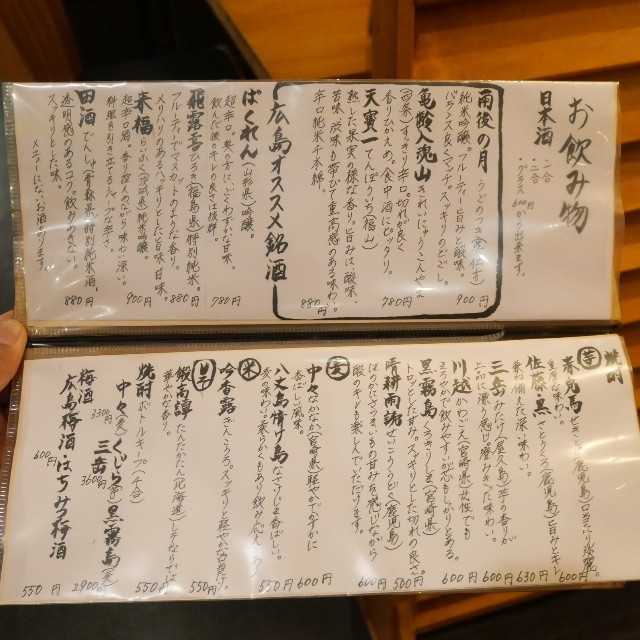 お飲み物
日本酒
・一合
・二合
・グラス 600円から出来ます。
雨後の月 うごのつき(呉・仁方)
純米吟醸。フルーティー旨みと酸味。
バランス良くマッチ。スッキリのどごし。
900円
亀齢入魂山 きれいにゅうこんやま
(西条)すっきり辛口。切れが良く
香りひかえめ。食中酒にピッタリ。
780円
天寶一 てんぽういち(福山)
熟した果実の様な香り。旨みは、酸味、
苦味、渋味も帯びて重高感のある味わい。
辛口純米千本錦。
880円
広島オススメ銘酒
ばくれん(山形県)吟醸。
超辛口。奥の方に、ごくわずかな甘味。
飲んだ後のキレの良さは抜群。
780円
飛露喜 ひろき(福島県)特別純米。
フルーティでマスカットのような香り。
メリハリのあるハッキリとした旨味、甘味。
880円
来福 らいふく(茨城県)純米吟醸。
超辛口酒。香り控えめながら味わい深い。
料理を引き立てるスープな辛さ。
900円
田酒 でんしゅ(青森県)特別純米酒。
透明感のあるコク。飲みあきのない
スッキリとした味。
880円
メニューにないお酒あります。
焼酎
芋
赤兎馬 せきとば(鹿児島)口当たり涼麗。
重厚な味わい。
600円
佐藤・黒 さとうくろ(鹿児島)旨みとキレ
兼ね備えた深い味わい。
630円
三岳 みたけ(屋久島)芋の香りが
よいに漂う感じ澄みきった味わい。
600円
川越 かわごえ(宮崎県)女性でも
まろやかで飲みやすいが芯もしっかりとある。
600円
黒霧島 くろきりしま(宮崎県)
トロッとした甘み。スッキリとした切れの良さ。
500円
晴耕雨読 せいこううどく(鹿児島)
ほのかにさつまいもの甘みを感じながら
酸のキレも楽しんでいただけます。
600円
麦
中々 なかなか(宮崎県)軽やかで歩かに
香ばしい風味。
600円
八丈島情け島 なさけじま 香ばしい。
麦の味わい。柔らかともあり飲み応えバツグン
550円
米
吟香露 ぎんこうろ。スッキリと軽やかな香り。
550円
鍛高譚 たんたかたん(北海道)しそならではの
華やかな香り。
550円
焼酎 ボトルキープ(千合)
中々(麦)くじら(芋)黒霧島(麦)
3300円
2,900円
三岳
3600円
梅酒
広島梅酒・はちみつ梅酒
600円
550円